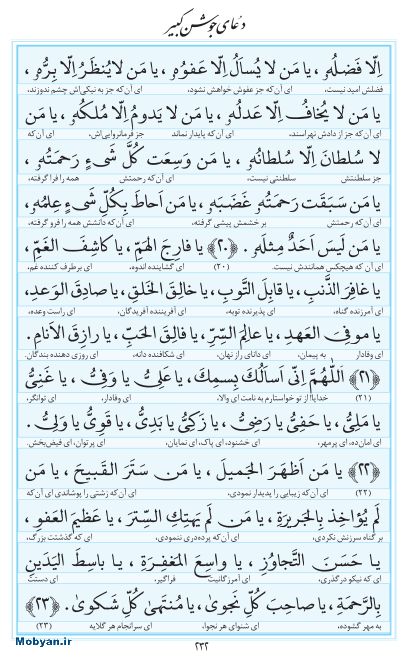 دعای جوشن کبیر
اِلّا فَضلُهُ، یا مَن لا یُسأَلُ اِلّا عَفوُهُ، یا مَن لا یُنظَرُ اِلّا بِرُّهُ،
فضلش امید نیست، ای آن‌که جز عفوش خواهش نشود، ای آن‌که جز به نیکی‌اش چشم ندوزند،
یا مَن لا یُخافُ اِلّا عَدلُهُ، یا مَن لا یَدومُ اِلّا مُلکُهُ، یا مَن
ای آن‌که جز از دادش نهراسند، ای آن‌که پایدار نماند جز فرمانروایی‌اش، ای آن‌که
لا سُلطانَ اِلّا سُلطانُهُ، یا مَن وَسِعَت کُلَّ شَیءٍ رَحمَتُهُ،
جز سلطنتش سلطنتی نیست، ای آن‌که رحمتش همه را فرا گرفته،
یا مَن سَبَقَت رَحمَتُهُ غَضَبَهُ، یا مَن اَحاطَ بِکُلِّ شَیءٍ عِلمُهُ،
ای آن‌که رحمتش بر خشمش پیشی گرفته، ای آن‌که دانشش همه را فرو گرفته،
یا مَن لَیسَ اَحَدٌ مِثلَهُ. ﴿۲۰﴾ یا فارِجَ الهَمِّ، یا کاشِفَ الغَمِّ،
ای آن که هیچکس همانندش نیست. (۲۰) ای گشاینده اندوه، ای برطرف کننده غم،
یا غافِرَ الذَّنبِ، یا قابِلَ التَّوبِ، یا خالِقَ الخَلقِ، یا صادِقَ الوَعدِ،
ای آمرزنده گناه، ای پذیرنده توبه، ای آفریننده آفریدگان، ای راست وعده،
یا موفِیَ العَهدِ، یا عالِمَ السِّرِّ، یا فالِقَ الحَبِّ، یا رازِقَ الاَنامِ.
ای وفادار به پیمان، ای دانای راز نهان، ای شکافنده دانه، ای روزی دهنده بندگان.
﴿۲۱﴾ اَللّٰهُمَّ اِنّی اَسأَلُکَ بِسمِکَ، یا عَلیُّ، یا وَفیُّ، یا غَنیُّ،
(۲۱) خدایا! از تو خواستارم به نامت ای والا، ای وفادار، ای توانگر،
یا مَلیُّ، یا حَفیُّ، یا رَضیُّ، یا زَکیُّ، یا بَدیُّ، یا قَویُّ، یا وَلیُّ.
ای امان‌ده، ای پرمهر، ای خشنود، ای پاک، ای نمایان، ای پرتوان، ای فیض‌بخش.
﴿۲۲﴾ یا مَن اَظهَرَ الجَمیلَ، یا مَن سَتَرَ القَبیحَ، یا مَن
(۲۲) ای آن‌که زیبایی را پدیدار نمودی، ای آن‌که زشتی را پوشاندی ای آن‌که
لَم یُؤاخِذ بِالجَریرَةِ، یا مَن لَم یَهتِکِ السِّترَ، یا عَظیمَ العَفوِ،
بر گناه سرزنش نکردی، ای آن‌که پرده‌دری ننمودی، ای که گذشتت بزرگ،
یا حَسَنَ التَّجاوُزِ، یا واسِعَ المَغفِرَةِ، یا باسِطَ الیَدَینِ
ای که نیکو درگذری، ای آمرزگانیت فراگیر، ای دستت
بِالرَّحمَةِ، یا صاحِبَ کُلِّ نَجویٰ، یا مُنتَهیٰ کُلِّ شَکویٰ. ﴿۲۳﴾
به مهر گشوده، ای شنوای هر نجوا، ای سرانجام هر گلایه (۲۳)
Mobyan.ir
۲۳۲